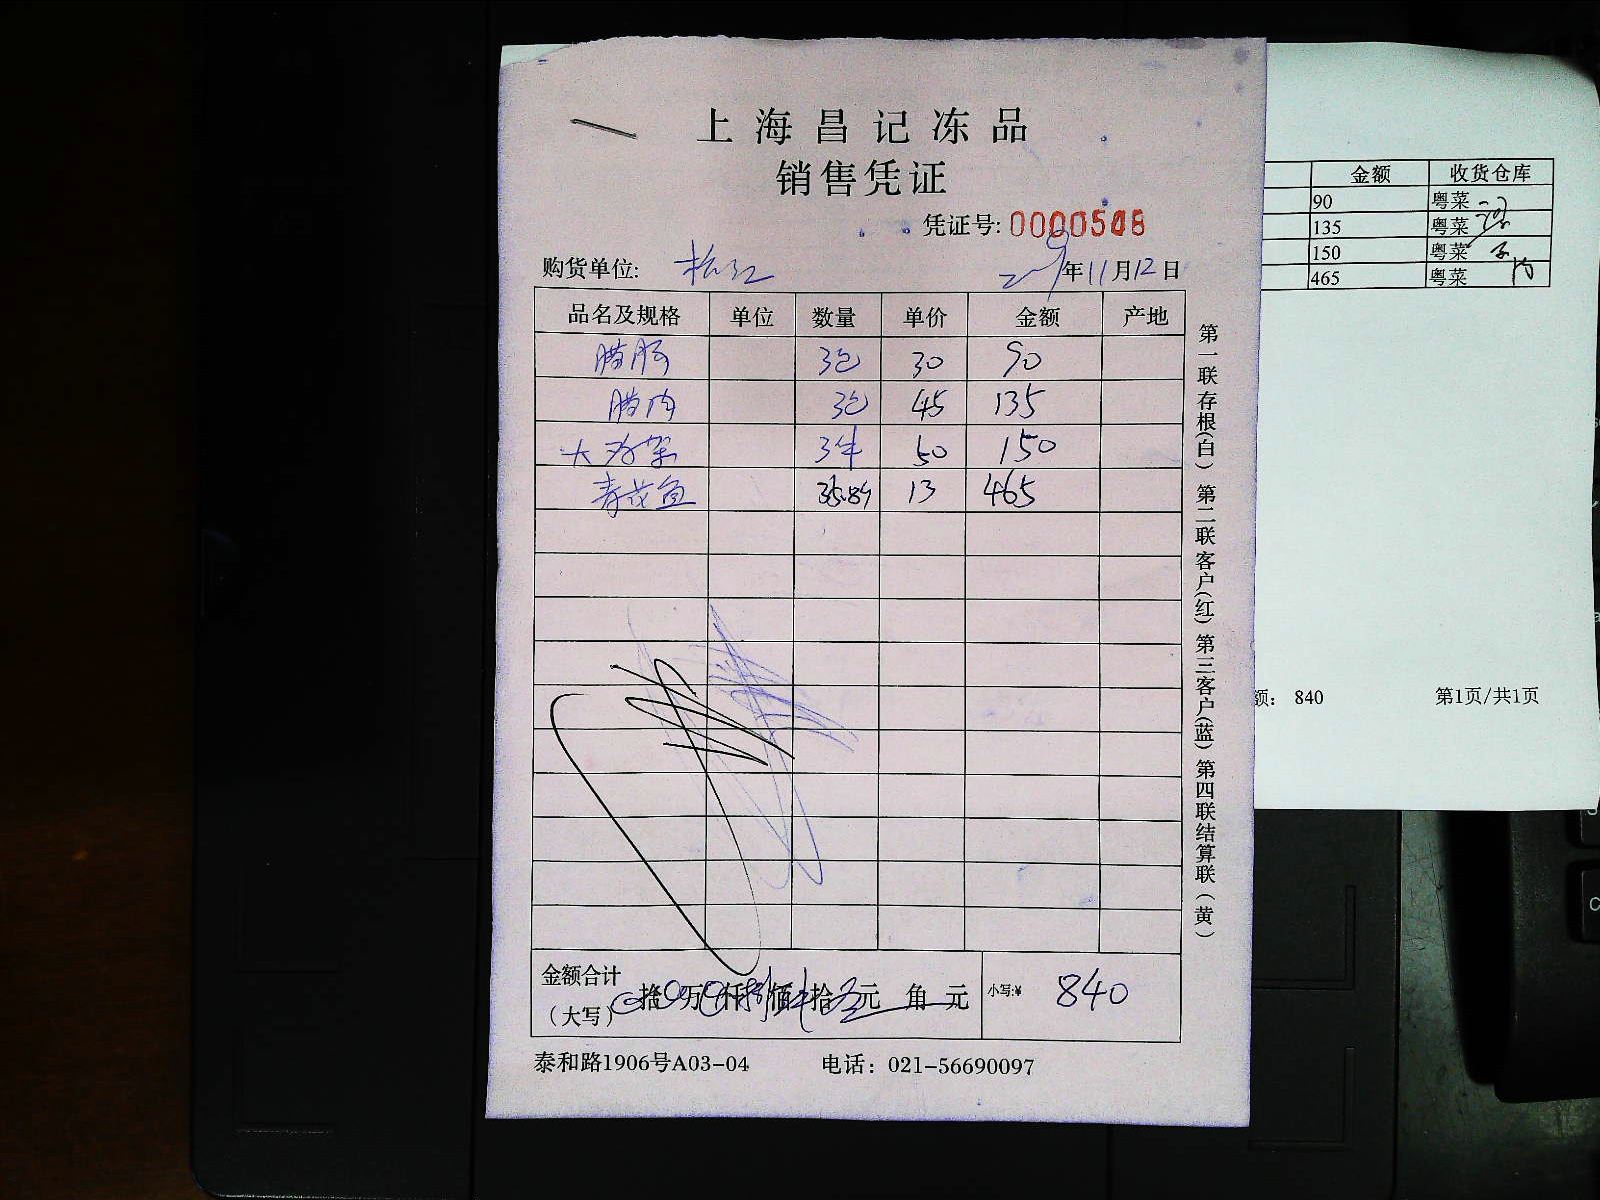 上海昌记冻品
销售凭证
凭证号: 0000508
购货单位: 年11月12日
品名及规格 单位 数量 单价 金额 产地
腊肠 3包 30 90
腊肉 3包 45 135
大 3件 50 150
青花鱼 35.8斤 13 465
金额合计
(大写) 拾 万 仟 佰 拾 元 角 元 小写:¥ 840
泰和路1906号A03-04 电话: 021-56690097
第一联存根(白) 第二联客户(红) 第三客户(蓝) 第四联结算联(黄)
金额 收货仓库
90 粤菜
135 粤菜
150 粤菜
465 粤菜
额: 840 第1页/共1页